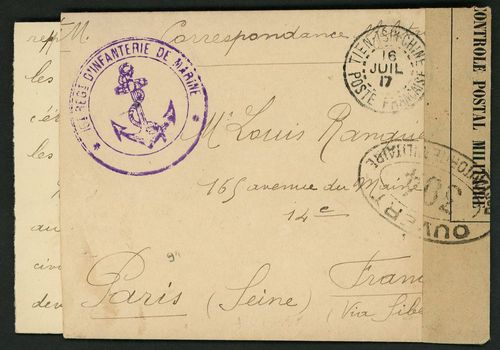 Correspondance
* REGT D'INFANTERIE DE MARINE *
TIEN-TSIN CHINE
16
JUIL
17
POSTE FRANÇAISE
CONTROLE POSTAL MILITAIRE
OUVERT
304
Mr Louis
165 avenue du Maine
14e
Paris (Seine) Franc
(Via Sibe
les
les
au